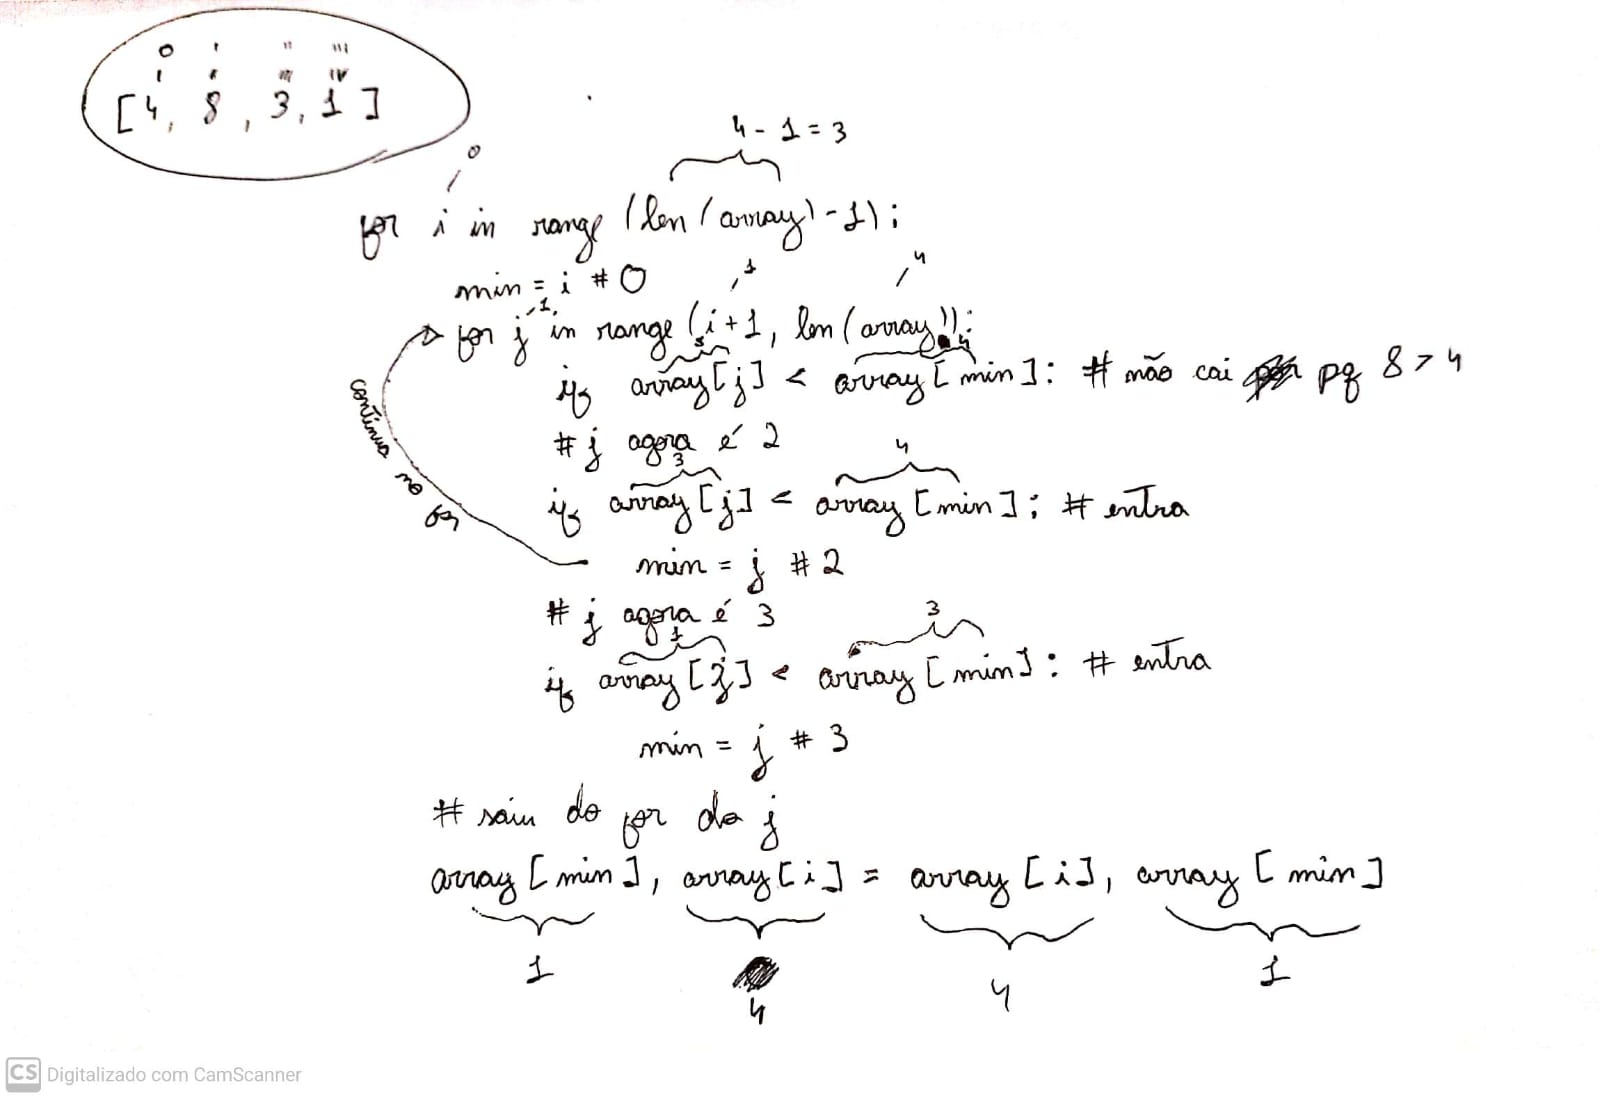 0 I II III
I II III IV
[4, 8, 3, 1]
4 - 1 = 3
0
for i in range (len (array) - 1):
min = i # 0
1 4
1
for j in range (i + 1, len (array)):
4
if array [j] < array [min]: # não cai pq 8 > 4
continua no for
# j agora é 2
3 4
if array [j] < array [min]: # entra
min = j # 2
# j agora é 3
1 3
if array [j] < array [min]: # entra
min = j # 3
# saiu do for do j
array [min], array [i] = array [i], array [min]
1 4 4 1
CS Digitalizado com CamScanner